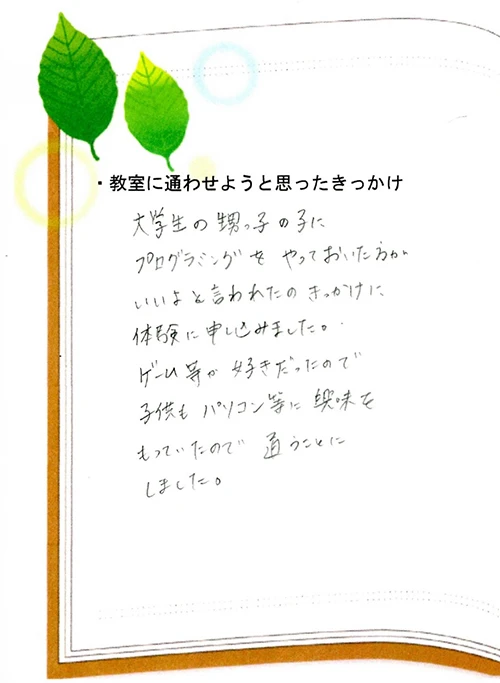 ・教室に通わせようと思ったきっかけ
大学生の甥っ子の子に
プログラミングを やっておいた方が
いいよと言われたの きっかけに
体験に申し込みました。
ゲーム等が好きだったので
子供も パソコン等に 興味を
もっていたので 通うことに
しました。